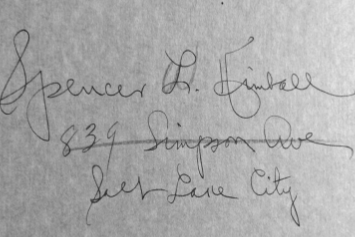 Spencer L. Kimball
839 Simpson Ave
Salt Lake City